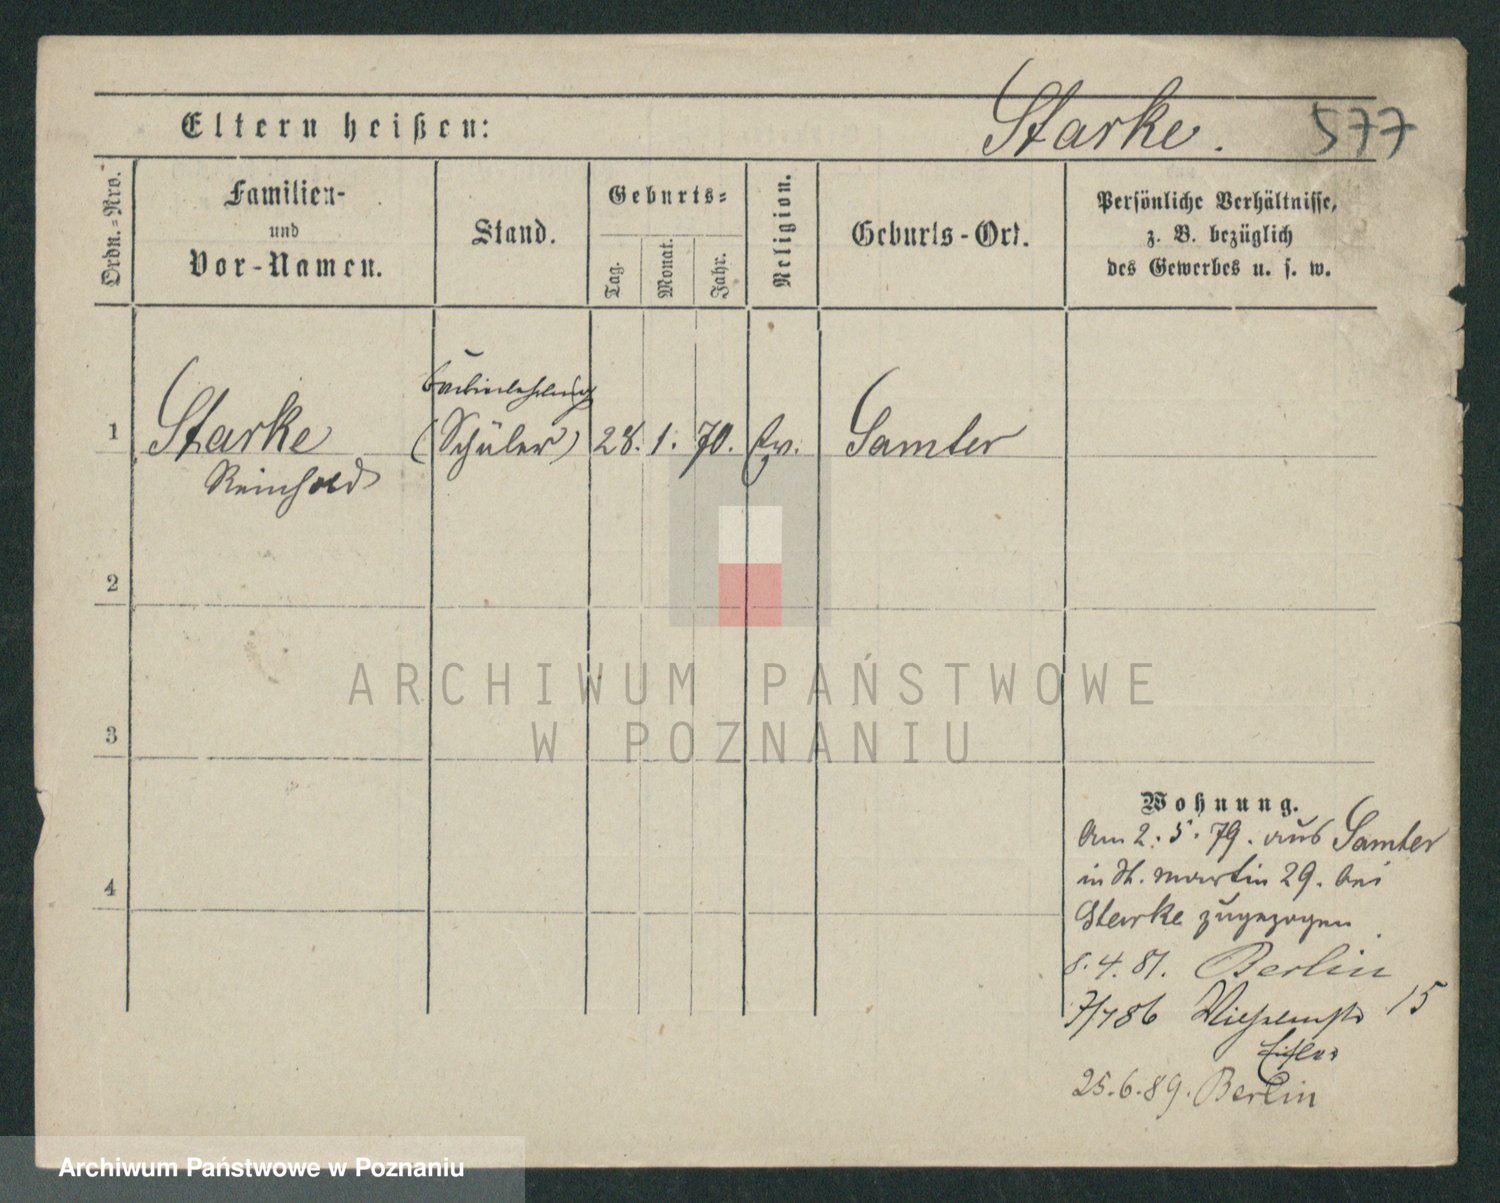 Eltern heißen: Starke. 577
Ordn.-Nro.
Familien-
und
Vor-Namen.
Stand.
Geburts-
Tag.
Monat.
Jahr.
Religion.
Geburts-Ort.
Persönliche Verhältnisse,
z. B. bezüglich
des Gewerbes u. s. w.
1 Starke (Schüler) 28. 1. 70. Ev. Samter
Reinhold
2
ARCHIWUM PAŃSTWOWE
W POZNANIU
3
4
Wohnung.
Am 2. 5. 79. aus Samter
in St. Martin 29. bei
Starke zugezogen
8. 4. 81. Berlin
7/7 86 Wilhelmstr 15
25. 6. 89. Berlin
Archiwum Państwowe w Poznaniu